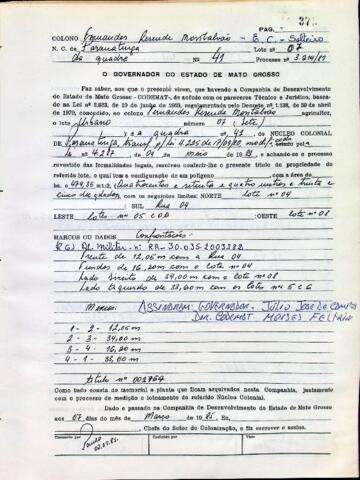 PAG. - 37
COLONO Fernandes Resende Montalvão - E. C. - Solteiro
N. C. de Paranatinga Lote nº 07
da quadra Nº 41 Processo nº 3.214/81
O GOVERNADOR DO ESTADO DE MATO GROSSO
Faz saber, aos que o presente virem, que havendo a Companhia de Desenvolvimento
do Estado de Mato Grosso - CODEMAT-, de acordo com os pareceres Técnico e Jurídico, basea-
do na Lei nº 2.933, de 19 de junho de 1969, regulamentada pelo Decreto nº 1.138, de 30 de abril
de 1970, concedido ao colono Fernandes Resende Montalvão agricultor,
o lote Urbano número 07 (sete)
e a quadra nº 41 DO NÚCLEO COLONIAL
DE Paranatinga, p/ Lei 4.225 de modificada pela
Lei nº 4.287 de 04 de maio de e, achando-se o processo
revestido das formalidades legais, resolveu conferir-lhe o presente título de propriedade do
referido lote, o qual tem a configuração de um polígono com a área de
474,35 mt2 Quatrocentos e setenta e quatro metros e trinta e
cinco com os seguintes limites: NORTE lote nº 04
SUL Rua 04
LESTE Lotes nº 05 e 06 OESTE lote nº 08
MARCOS OU DADOS Confrontações
RG Militar nº RA-30.035-2003382
Frente de 12,05 m com a Rua 04
Fundos de 16,20 m com o lote nº 04
Lado direito de 34,00 m com o lote nº 08
Lado esquerdo de 33,60 m com os lotes nº 5 e 6
Marcos: ASSINARAM: GOVERNADOR - JÚLIO JOSÉ DE CAMPOS
DIR. CODEMAT MOISES FELTRIN
1 - 2 - 12,05 m
2 - 3 - 34,00 m
3 - 4 - 16,00 m
4 - 1 - 33,00 m
título nº 001764
Como tudo consta do memorial e planta que ficam arquivados nesta Companhia, juntamente
com o processo de medição e loteamento do referido Núcleo Colonial.
Dado e passado na Companhia de Desenvolvimento do Estado de Mato Grosso
aos 07 dias do mês de Março de 1985 Eu,
, Chefe do Setor de Colonização, o fiz escrever e assino.